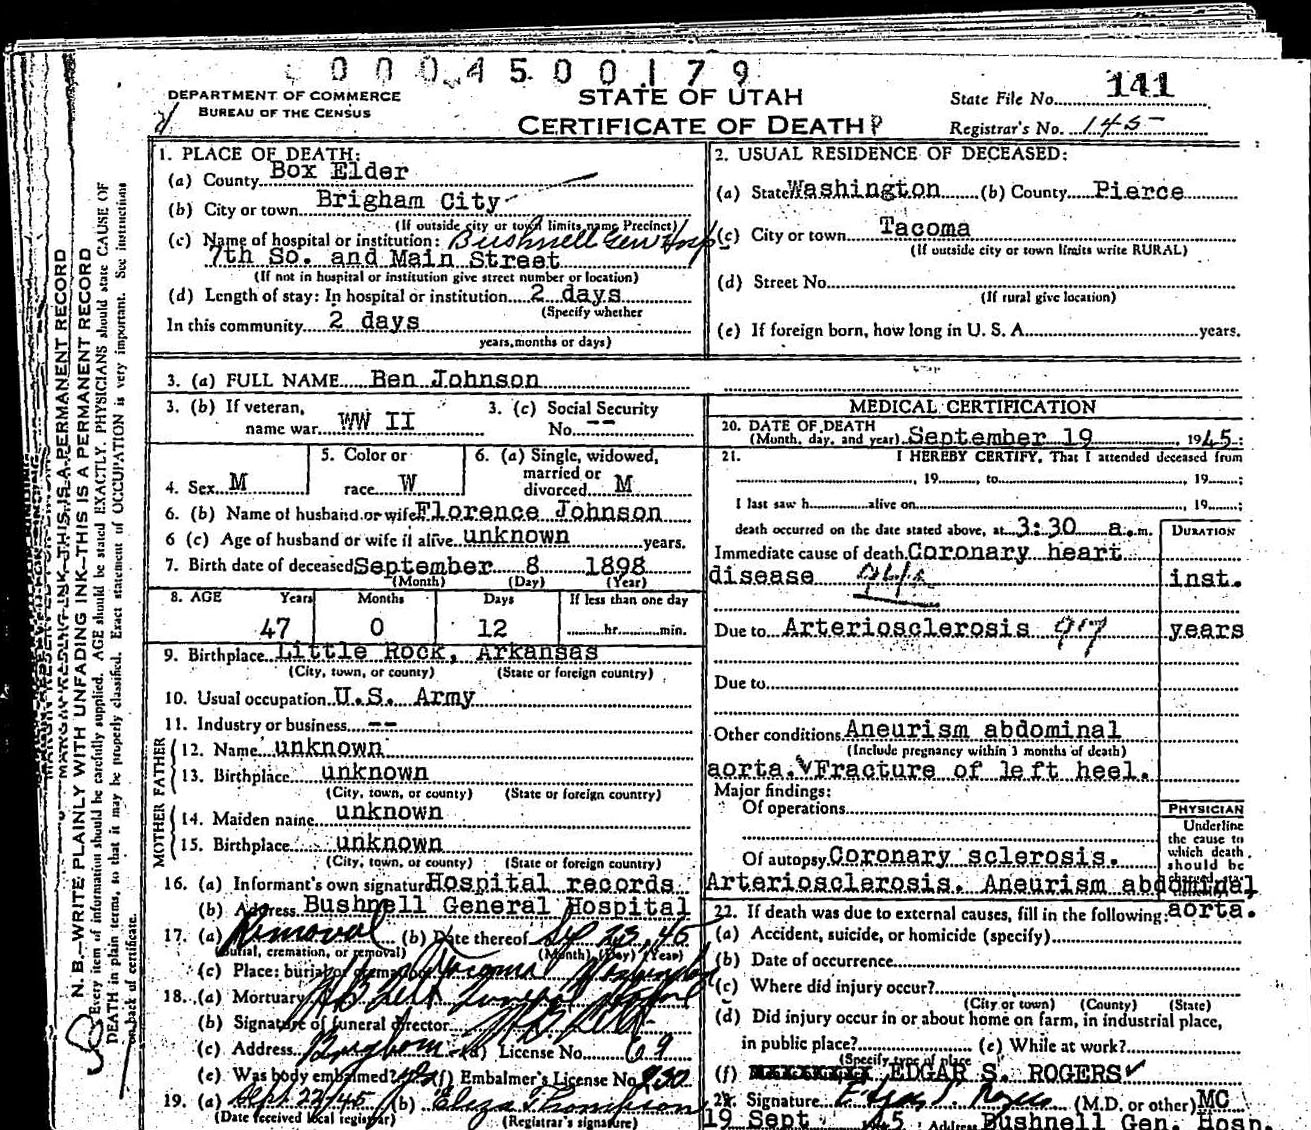 0 0 0 4 5 0 0 1 7 9
DEPARTMENT OF COMMERCE
BUREAU OF THE CENSUS
STATE OF UTAH
CERTIFICATE OF DEATH
State File No. 141
Registrar's No. 145
1. PLACE OF DEATH:
(a) County Box Elder
(b) City or town Brigham City
(If outside city or town limits name Precinct)
(c) Name of hospital or institution: Bushnell Gen Hosp
7th So. and Main Street
(If not in hospital or institution give street number or location)
(d) Length of stay: In hospital or institution 2 days
(Specify whether
In this community 2 days
years, months or days)
2. USUAL RESIDENCE OF DECEASED:
(a) State Washington (b) County Pierce
(c) City or town Tacoma
(If outside city or town limits write RURAL)
(d) Street No.
(If rural give location)
(e) If foreign born, how long in U. S. A. years.
3. (a) FULL NAME Ben Johnson
3. (b) If veteran, name war WW II
3. (c) Social Security No. --
4. Sex M
5. Color or race W
6. (a) Single, widowed, married or divorced M
6. (b) Name of husband or wife Florence Johnson
6 (c) Age of husband or wife if alive unknown years.
7. Birth date of deceased September 8 1898
(Month) (Day) (Year)
8. AGE Years Months Days If less than one day
47 0 12 hr. min.
9. Birthplace Little Rock, Arkansas
(City, town, or county) (State or foreign country)
10. Usual occupation U.S. Army
11. Industry or business --
FATHER
12. Name unknown
13. Birthplace unknown
(City, town, or county) (State or foreign country)
MOTHER
14. Maiden name unknown
15. Birthplace unknown
(City, town, or county) (State or foreign country)
16. (a) Informant's own signature Hospital records
(b) Address Bushnell General Hospital
17. (a) Removal (b) Date thereof Sep 23, 45
(Burial, cremation, or removal) (Month) (Day) (Year)
(c) Place: burial or cremation Tacoma Washington
18. (a) Mortuary
(b) Signature of funeral director
(c) Address Brigham (d) License No. 69
(e) Was body embalmed? yes (f) Embalmer's License No. 230
19. (a) Sept 22/45 (b) Eliza Thompson
(Date received local registrar) (Registrar's signature)
MEDICAL CERTIFICATION
20. DATE OF DEATH
(Month, day, and year) September 19, 1945
21. I HEREBY CERTIFY, That I attended deceased from
, 19 , to , 19 ;
I last saw h alive on , 19 ;
death occurred on the date stated above, at 3:30 a.m.
DURATION
Immediate cause of death Coronary heart
disease inst.
Due to Arteriosclerosis years
Due to
Other conditions Aneurism abdominal
(Include pregnancy within 3 months of death)
aorta. Fracture of left heel.
Major findings:
Of operations
Of autopsy Coronary sclerosis.
Arteriosclerosis. Aneurism abdominal
aorta.
PHYSICIAN
Underline
the cause to
which death
should be
22. If death was due to external causes, fill in the following:
(a) Accident, suicide, or homicide (specify)
(b) Date of occurrence
(c) Where did injury occur?
(City or town) (County) (State)
(d) Did injury occur in or about home on farm, in industrial place,
in public place? (e) While at work?
(Specify type of place
(f) EDGAR S. ROGERS
Signature Edgar S. Rogers (M.D. or other) MC
19 Sept 45 Address Bushnell Gen. Hosp.
N. B.—WRITE PLAINLY WITH UNFADING INK—THIS IS A PERMANENT RECORD
Every item of information should be carefully supplied. AGE should be stated EXACTLY. PHYSICIANS should state CAUSE OF
DEATH in plain terms, so that it may be properly classified. Exact statement of OCCUPATION is very important. See instructions
on back of certificate.